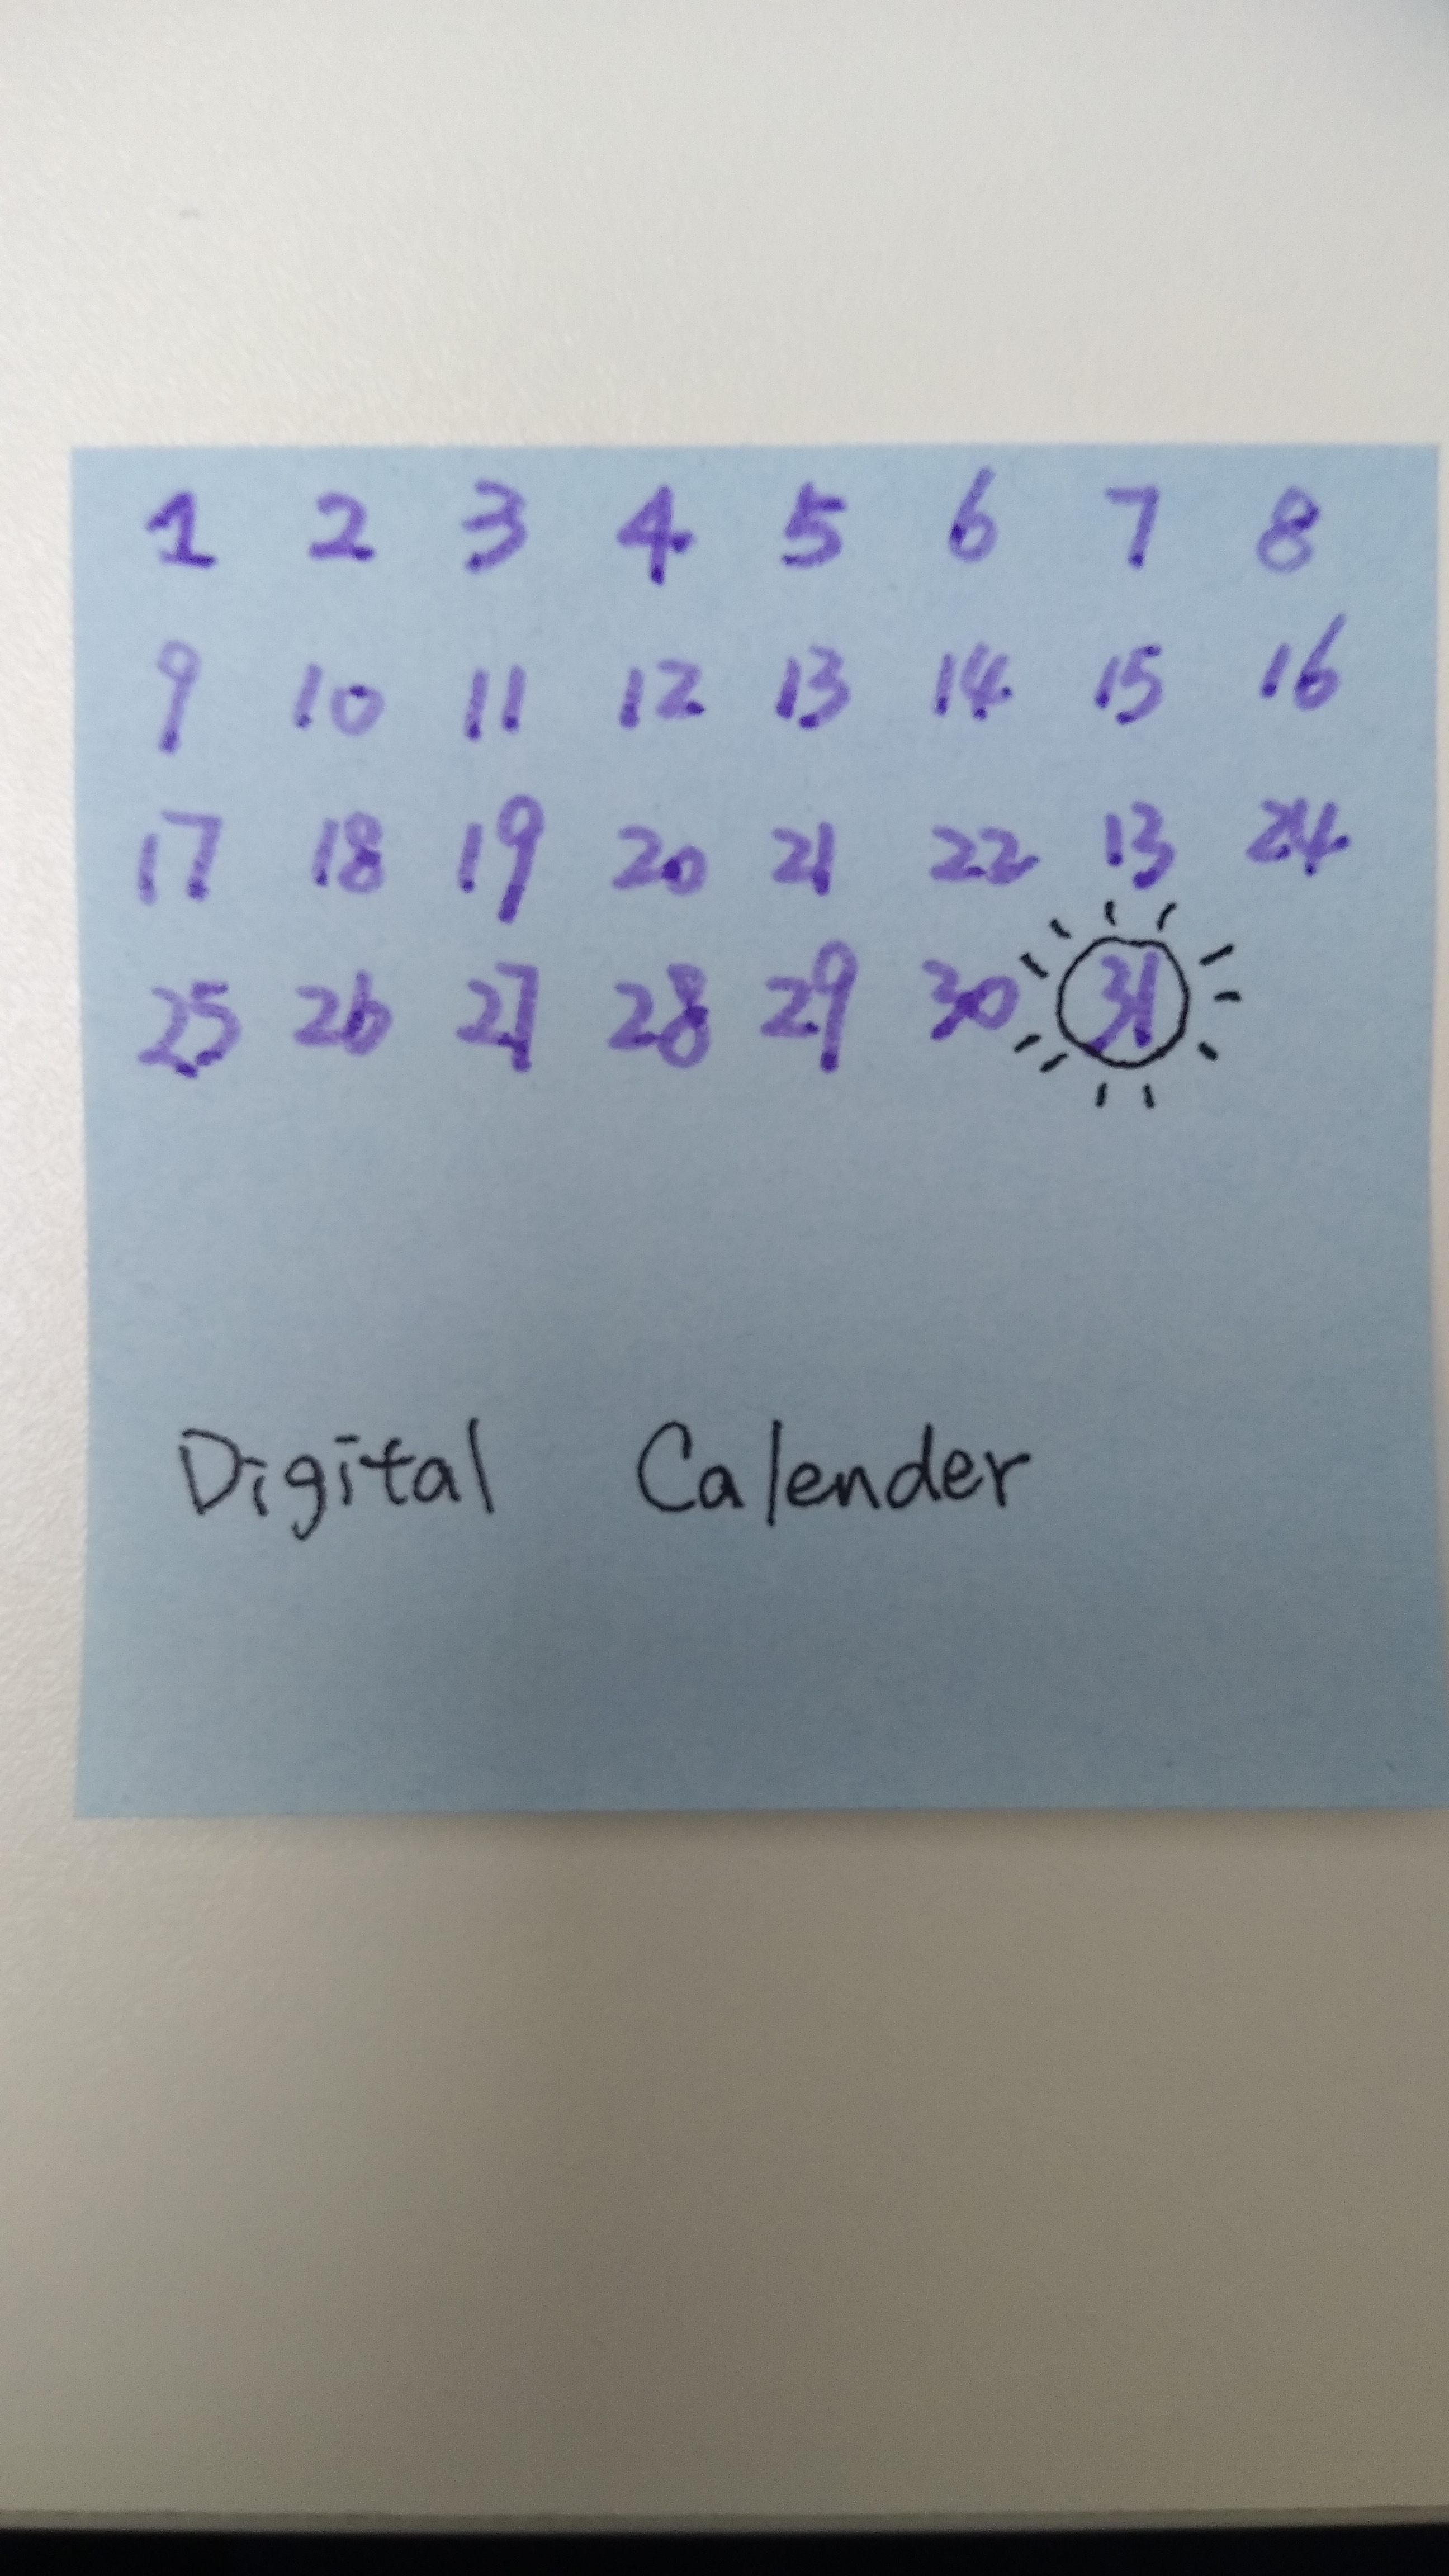 1 2 3 4 5 6 7 8
9 10 11 12 13 14 15 16
17 18 19 20 21 22 13 24
25 26 27 28 29 30 31
Digital Calender